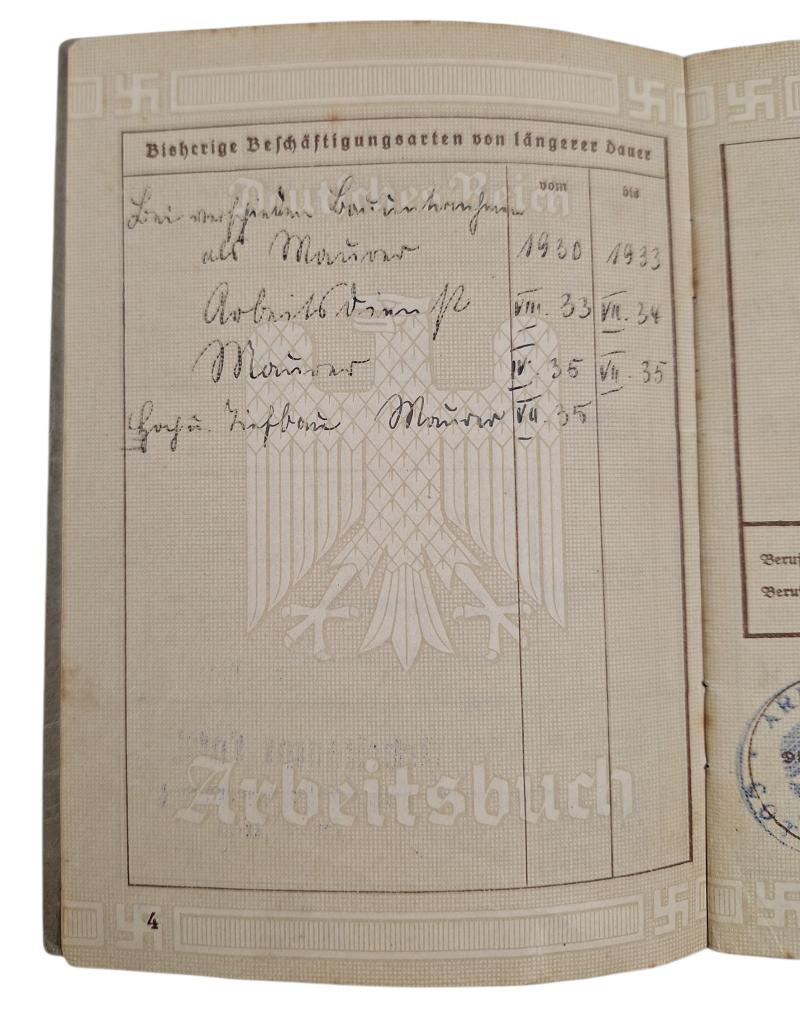 Bisherige Beschäftigungsarten von längerer Dauer
vom bis
Deutsches Reich
Bei verschieden Bauunternehmen
als Maurer 1930 1933
Arbeitsdienst VIII. 33 VII. 34
Maurer IV. 35 VII. 35
Hoch u. Tiefbau Maurer VII. 35
Arbeitsbuch
4
Beruf
Beru